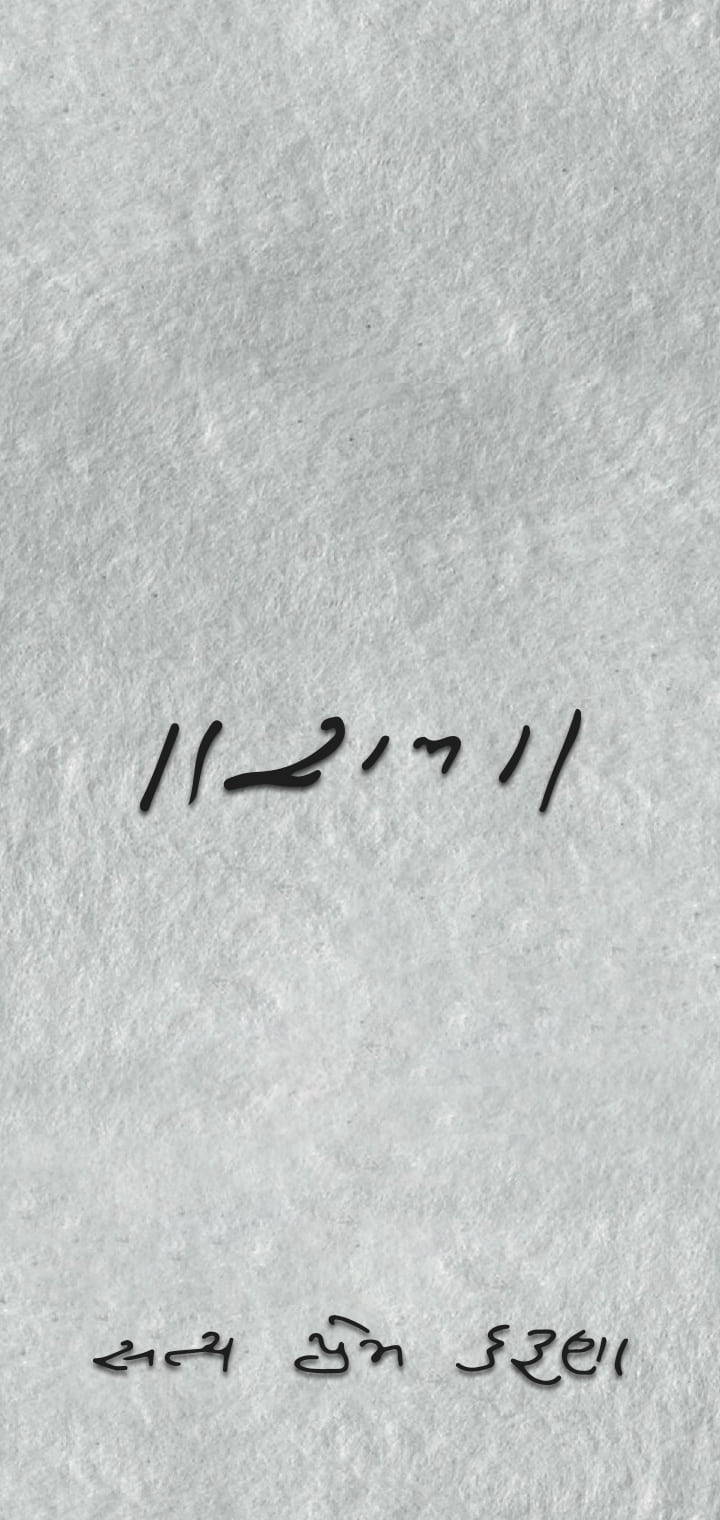 ॥રામ॥
સત્ય પ્રેમ કરુણા